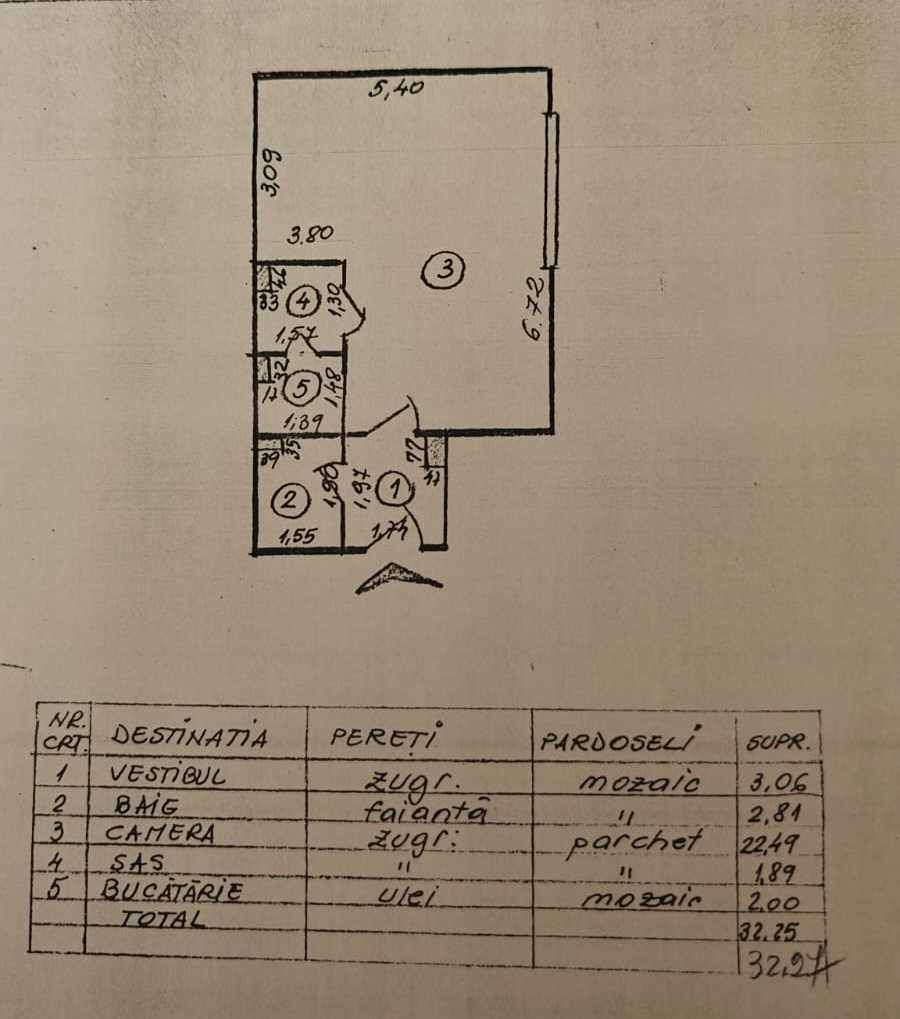 5,40
3,09
3.80
46
33
4
1,30
3
6.72
1,57
32
17
5
1,48
1,39
39
35
2
1,90
1,97
1
77
47
1,55
1,74
NR. CRT. DESTINATIA PEREȚI PARDOSELI SUPR.
1 VESTIBUL zugr. mozaic 3,06
2 BAIE faiantă " 2,81
3 CAMERA zugr. parchet 22,49
4 SAS " " 1,89
5 BUCĂTĂRIE ulei mozaic 2,00
TOTAL 32,25
32,27